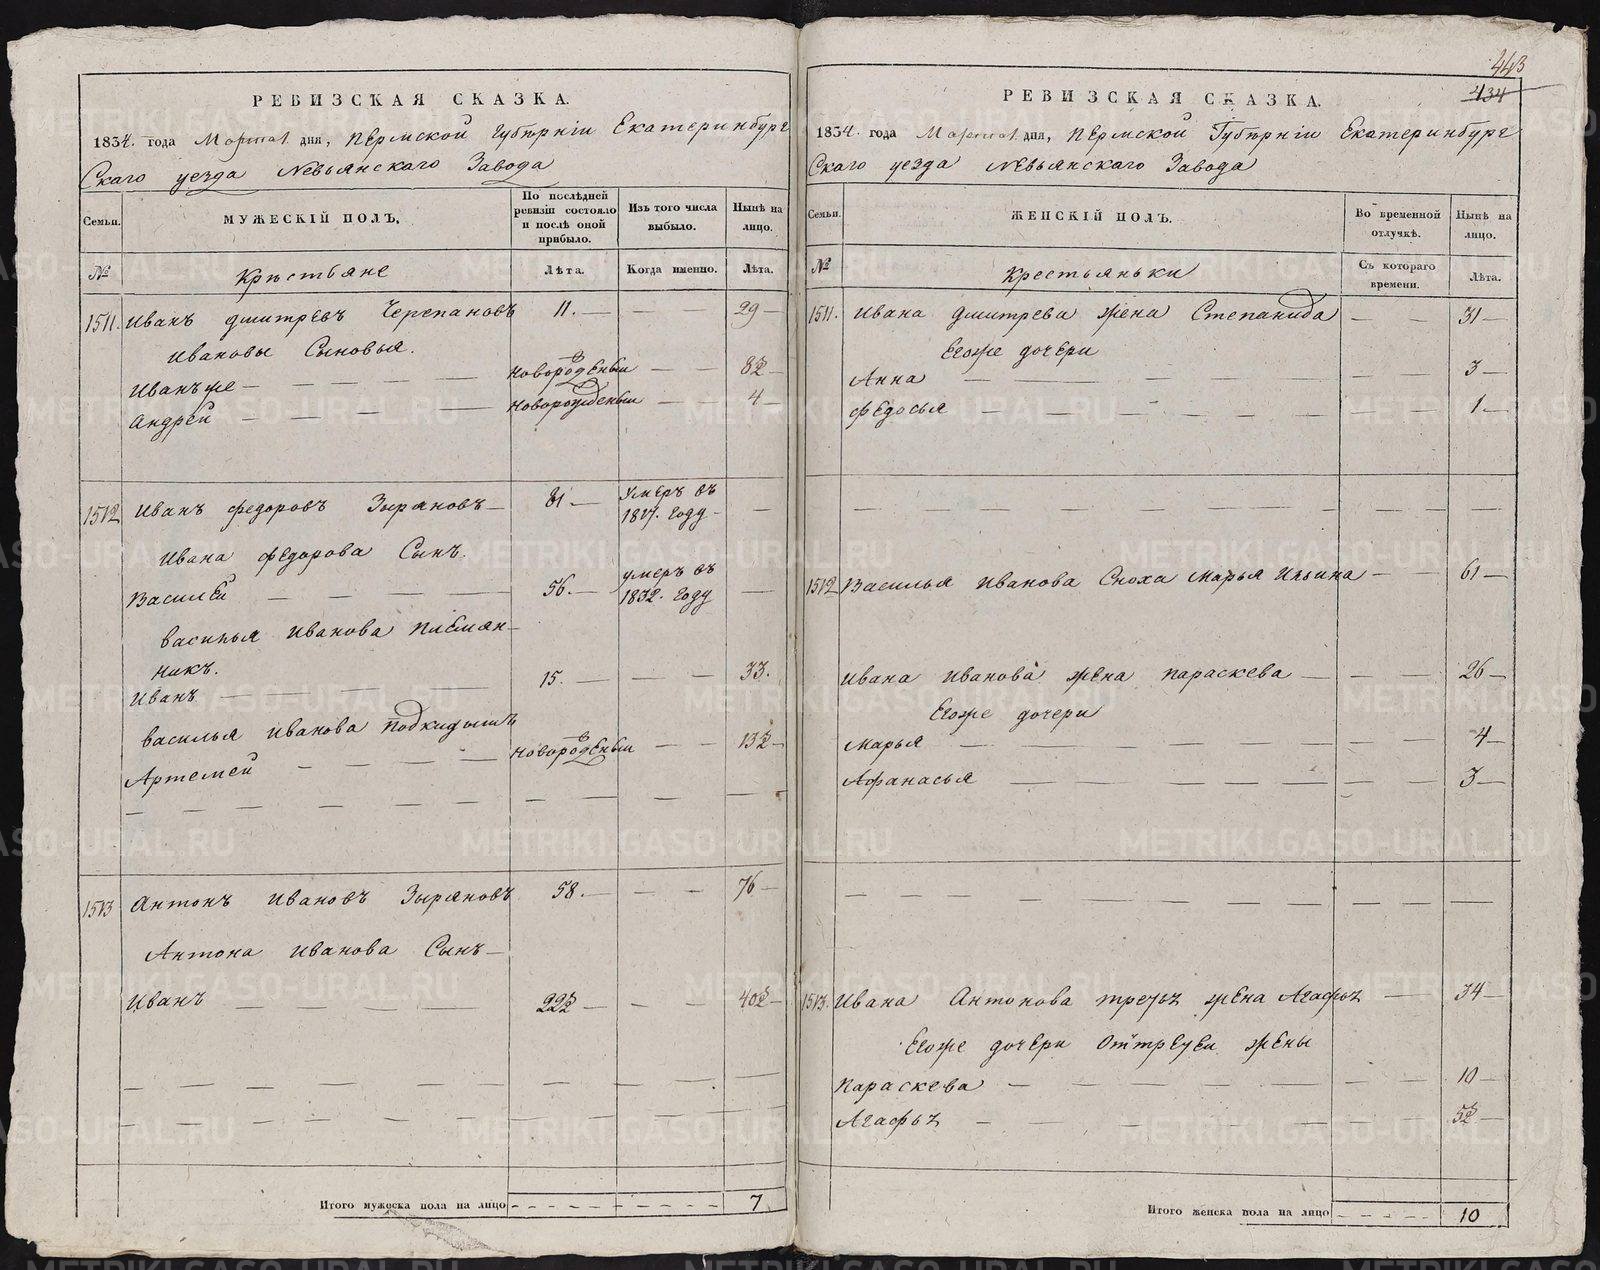 443
434
РЕВИЗСКАЯ СКАЗКА.
1834. года Марта дня, Пермской Губерніи Екатеринбург
Скаго уезда Невьянскаго Завода
Семьи.
МУЖЕСКІЙ ПОЛЪ.
По послѣдней ревизіи состояло и послѣ оной прибыло.
Изъ того числа выбыло.
Нынѣ на лицо.
№
Крестьяне
Лѣта.
Когда именно.
Лѣта.
1511. Иванъ Дмитревъ Черепановъ 11. — — — 29 —
Ивановы Сыновья.
Иванъ же — — — — новорожденый — — 8½ —
Андрей — — — — новорожденый — — 4 —
1512 Иванъ Федоровъ Зыряновъ — 81 — Умеръ въ 1817. Году —
Ивана Федорова Сынъ.
Василей — — — — 56. — умеръ въ 1832. Году —
Василья Иванова Племян
никъ.
Иванъ — — — — 15. — — — 33.
Василья Иванова Подкидышъ
Артемей — — — — новорожденый — — 13½ —
1513 Антонъ Ивановъ Зыряновъ 58. — — — 76 —
Антона Иванова Сынъ —
Иванъ — — — — 22½ — — — 40½ —
Итого мужеска пола на лицо - - - - - - 7
РЕВИЗСКАЯ СКАЗКА.
1834. года Марта дня, Пермской Губерніи Екатеринбург
Скаго уезда Невьянскаго Завода
Семьи.
ЖЕНСКІЙ ПОЛЪ.
Во временной отлучкѣ.
Нынѣ на лицо.
№
Крестьяньки
Съ котораго времени.
Лѣта.
1511. Ивана Дмитрева жена Степанида — — 31 —
Егоже дочери
Анна — — — — — — 3 —
Федосья — — — — — — 1 —
1512 Василья Иванова Сноха Марья Ильина — — 61 —
Ивана Иванова жена Параскева — — — 26 —
Егоже дочери
Марья — — — — — — 4 —
Афанасья — — — — — — 3 —
1513. Ивана Антонова третьѣ жена Агафьѣ — — 34 —
Егоже дочери От третьеи жены
Параскева — — — — — — 10 —
Агафьѣ — — — — — — 5½ —
Итого женска пола на лицо - - - - - - 10
METRIKI.GASO-URAL.RU